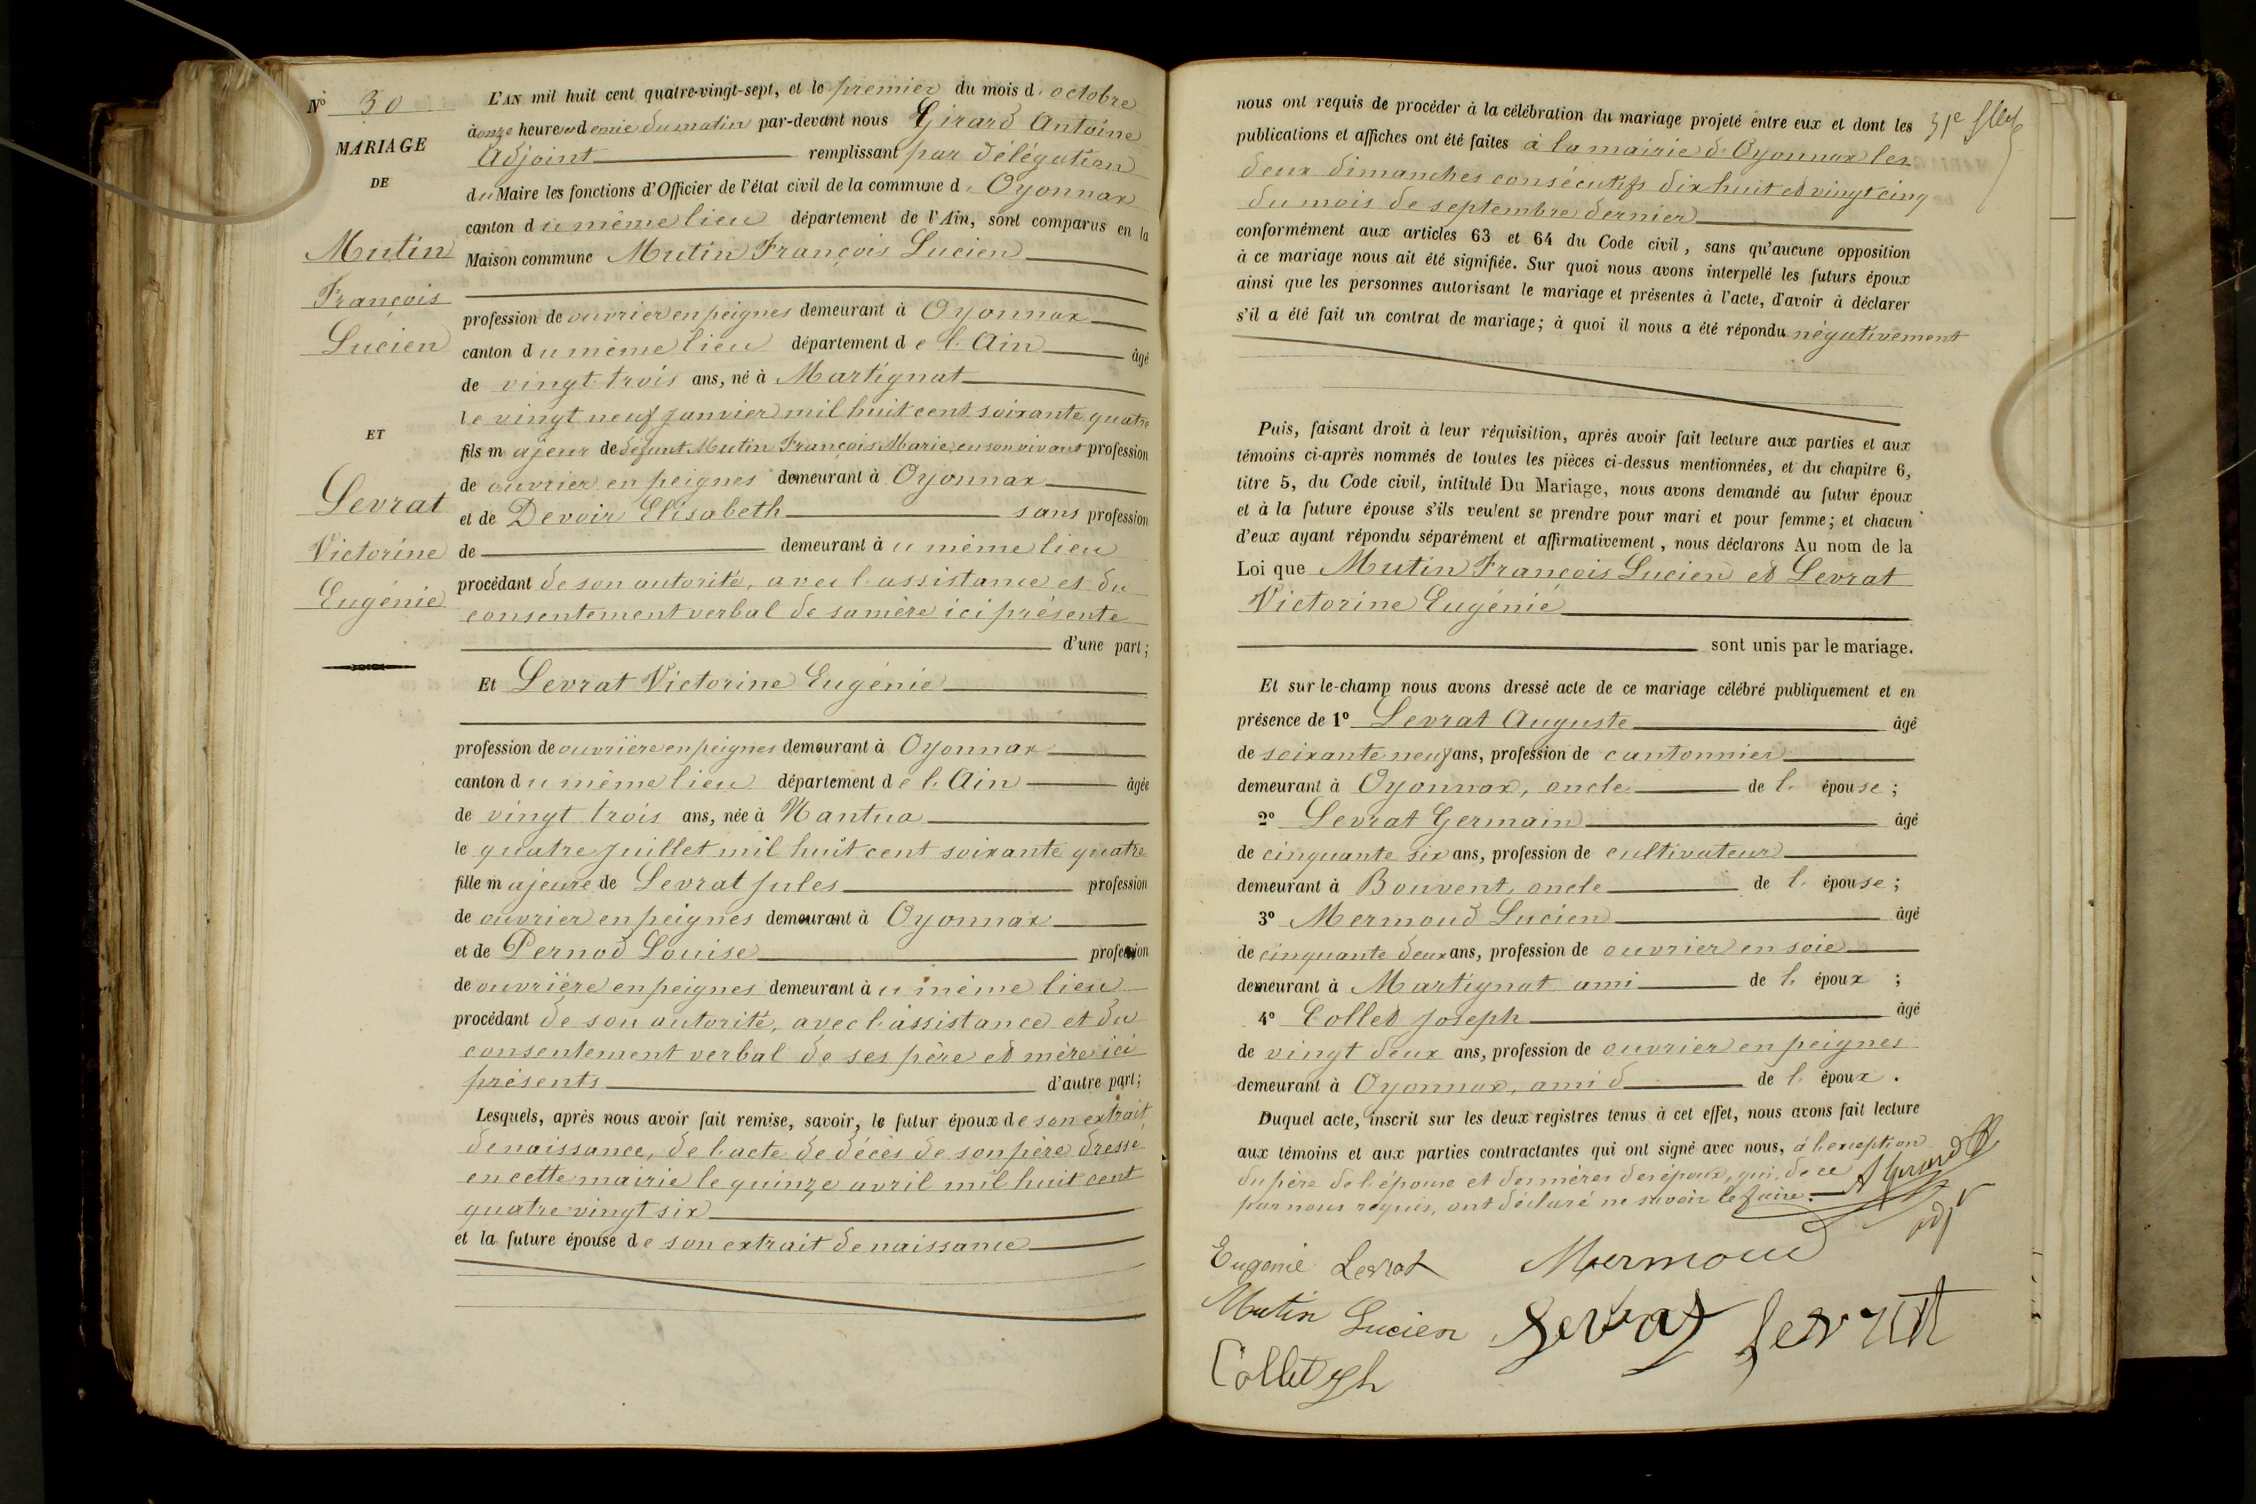 N° 30
MARIAGE
DE
Mutin
François
Lucien
ET
Levrat
Victorine
Eugénie
L'AN mil huit cent quatre-vingt-sept, et le premier du mois d'octobre
à onze heures et demie du matin par-devant nous Girard Antoine
Adjoint remplissant par délégation
du Maire les fonctions d'Officier de l'état civil de la commune d'Oyonnax
canton du même lieu département de l'Ain, sont comparus en la
Maison commune Mutin François Lucien
profession de ouvrier en peignes demeurant à Oyonnax
canton du même lieu département de l'Ain âgé
de vingt trois ans, né à Martignat
le vingt neuf janvier mil huit cent soixante quatre
fils majeur de défunt Mutin François Marie, en son vivant profession
de ouvrier en peignes demeurant à Oyonnax
et de Devoir Elisabeth sans profession
de demeurant à u même lieu
procédant de son autorité, avec l'assistance et du
consentement verbal de sa mère ici présente
d'une part;
Et Levrat Victorine Eugénie
profession de ouvrière en peignes demeurant à Oyonnax
canton du même lieu département de l'Ain âgée
de vingt trois ans, née à Nantua
le quatre juillet mil huit cent soixante quatre
fille majeure de Levrat Jules profession
de ouvrier en peignes demeurant à Oyonnax
et de Pernod Louise profession
de ouvrière en peignes demeurant à u même lieu
procédant de son autorité, avec l'assistance et du
consentement verbal de ses père et mère ici
présents d'autre part;
Lesquels, après nous avoir fait remise, savoir, le futur époux de son extrait
de naissance, de l'acte de décès de son père dressé
en cette mairie le quinze avril mil huit cent
quatre vingt six
et la future épouse de son extrait de naissance
31e
nous ont requis de procéder à la célébration du mariage projeté entre eux et dont les
publications et affiches ont été faites à la mairie d'Oyonnax les
deux dimanches consécutifs dix huit et vingt cinq
du mois de septembre dernier
conformément aux articles 63 et 64 du Code civil, sans qu'aucune opposition
à ce mariage nous ait été signifiée. Sur quoi nous avons interpellé les futurs époux
ainsi que les personnes autorisant le mariage et présentes à l'acte, d'avoir à déclarer
s'il a été fait un contrat de mariage; à quoi il nous a été répondu négativement
Puis, faisant droit à leur réquisition, après avoir fait lecture aux parties et aux
témoins ci-après nommés de toutes les pièces ci-dessus mentionnées, et du chapitre 6,
titre 5, du Code civil, intitulé Du Mariage, nous avons demandé au futur époux
et à la future épouse s'ils veulent se prendre pour mari et pour femme; et chacun
d'eux ayant répondu séparément et affirmativement, nous déclarons Au nom de la
Loi que Mutin François Lucien et Levrat
Victorine Eugénie
sont unis par le mariage.
Et sur-le-champ nous avons dressé acte de ce mariage célébré publiquement et en
présence de 1° Levrat Auguste âgé
de soixante neuf ans, profession de cantonnier
demeurant à Oyonnax, oncle de l'épouse;
2° Levrat Germain âgé
de cinquante six ans, profession de cultivateur
demeurant à Bouvent, oncle de l'épouse;
3° Mermoud Lucien âgé
de cinquante deux ans, profession de ouvrier en soie
demeurant à Martignat ami de l'époux;
4° Collet Joseph âgé
de vingt deux ans, profession de ouvrier en peignes
demeurant à Oyonnax, ami d de l'époux.
Duquel acte, inscrit sur les deux registres tenus à cet effet, nous avons fait lecture
aux témoins et aux parties contractantes qui ont signé avec nous, à l'exception
du père de l'épouse et des mères des époux, qui, de ce
par nous requis, ont déclaré ne savoir le faire. A Girard
adjt
Eugenie Levrat Mermoud
Mutin Lucien Levrat Levrat
Collet Jph